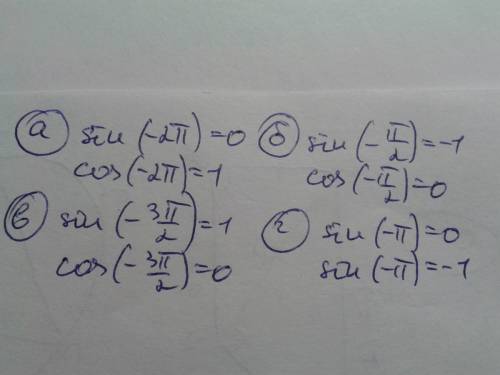 а) sin (-2π) = 0
cos (-2π) = 1
б) sin (-π/2) = -1
cos (-π/2) = 0
в) sin (-3π/2) = 1
cos (-3π/2) = 0
г) sin (-π) = 0
sin (-π) = -1